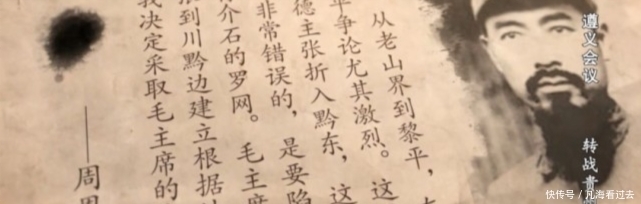 遵义会议
转战贵
从老山界到黎平，
平争论尤其激烈。这
德主张折入黔东，这
非常错误的，是要陷
介石的罗网。毛主席
展到川黔边建立根据
我决定采取毛主席的
——周
快传号 / 凡海看过去